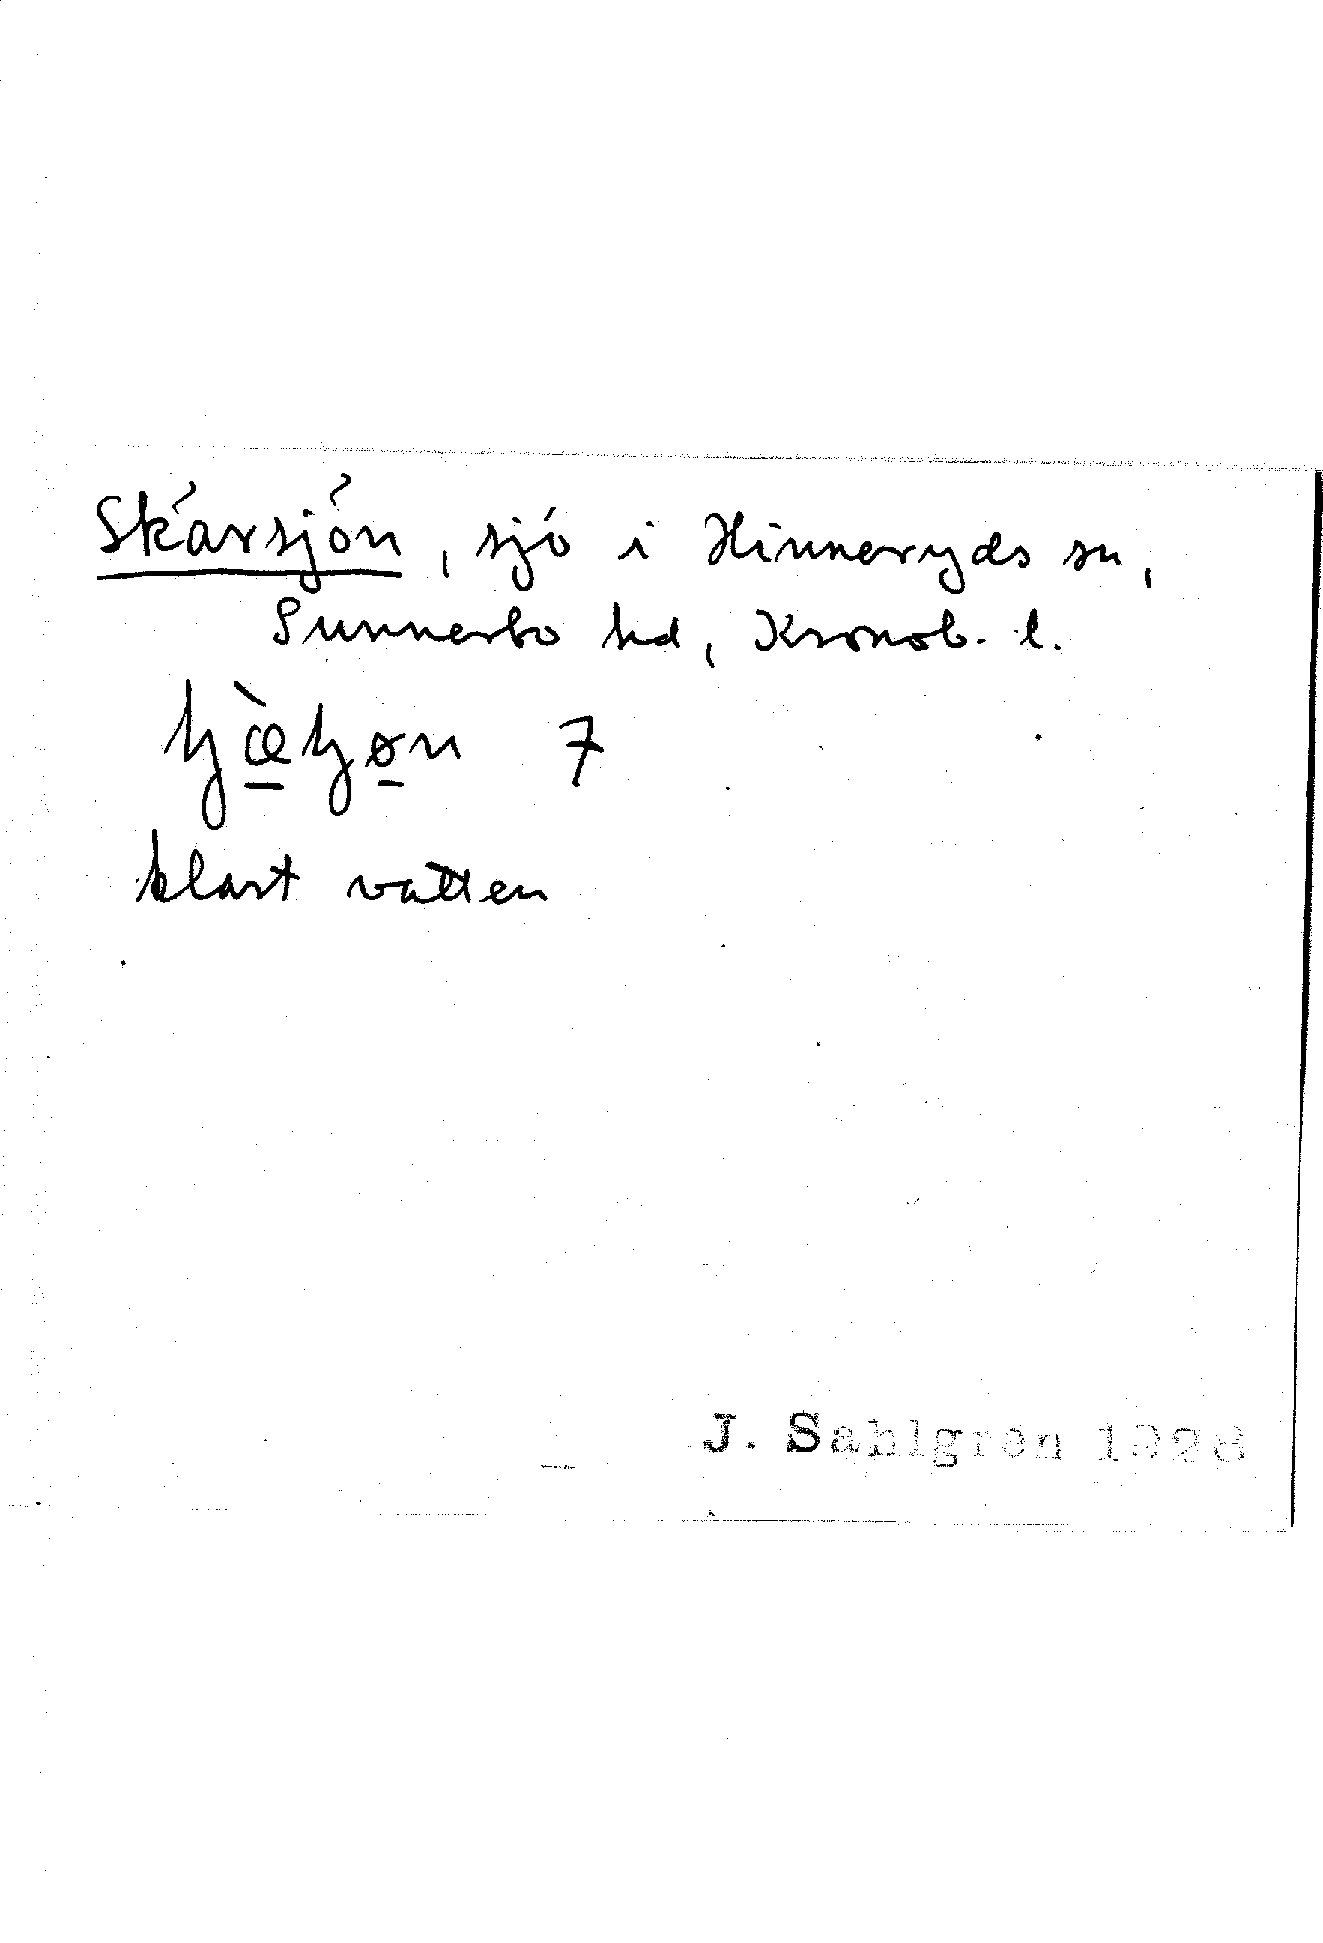 Skärsjön, sjö i Hinneryds sn,
Sunnerbo hd, Kronob. l.
ɧæ̀ɧøn 7
klart vatten
J. Sahlgren 1926